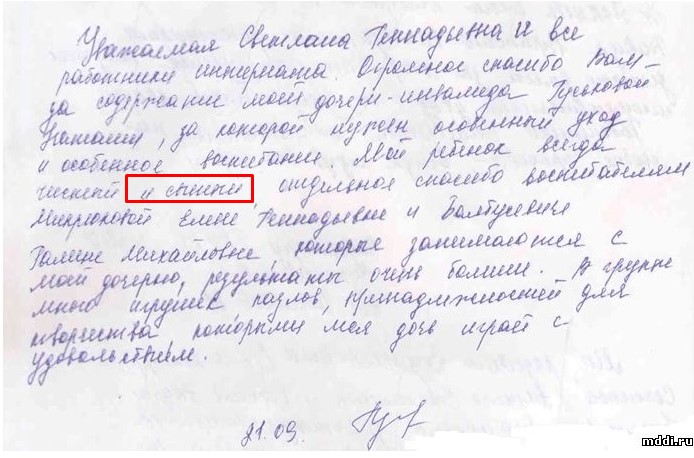 Уважаемая Светлана Геннадьевна и все
работники интерната. Огромное спасибо Вам
за содержание моей дочери-инвалида Гуськовой
Наташи, за которой нужен особенный уход
и особенное воспитание. Мой ребенок всегда
чистый и сытый, отдельное спасибо воспитателям
Микрюковой Елене Геннадьевне и
Галине Михайловне, которые занимаются с
моей дочерью, результаты очень большие. В группе
много игрушек пазлов, принадлежностей для
творчества которыми моя дочь играет с
удовольствием.
21.09.
mddi.ru